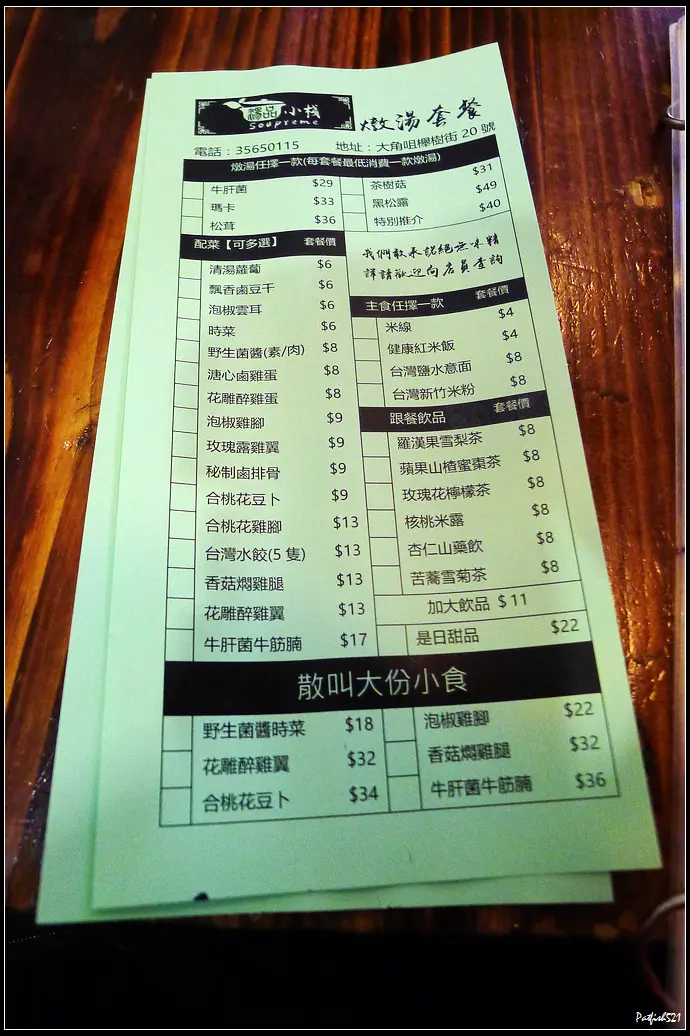 湯品小棧
Soupreme
燉湯套餐
電話：35650115 地址：大角咀櫸樹街 20 號
燉湯任擇一款(每套餐最低消費一款燉湯)
牛肝菌 $29
瑪卡 $33
松茸 $36
茶樹菇 $31
黑松露 $49
特別推介 $40
配菜【可多選】 套餐價
清湯蘿蔔 $6
飄香鹵豆干 $6
泡椒雲耳 $6
時菜 $6
野生菌醬(素/肉) $8
溏心鹵雞蛋 $8
花雕醉雞蛋 $8
泡椒雞腳 $9
玫瑰露雞翼 $9
秘制鹵排骨 $9
合桃花豆卜 $9
合桃花雞腳 $13
台灣水餃(5 隻) $13
香菇燜雞腿 $13
花雕醉雞翼 $13
牛肝菌牛筋腩 $17
我們敢承諾絕無味精
詳請歡迎向店員查詢
主食任擇一款 套餐價
米線 $4
健康紅米飯 $4
台灣鹽水意面 $8
台灣新竹米粉 $8
跟餐飲品 套餐價
羅漢果雪梨茶 $8
蘋果山楂蜜棗茶 $8
玫瑰花檸檬茶 $8
核桃米露 $8
杏仁山藥飲 $8
苦蕎雪菊茶 $8
加大飲品 $11
是日甜品 $22
散叫大份小食
野生菌醬時菜 $18
花雕醉雞翼 $32
合桃花豆卜 $34
泡椒雞腳 $22
香菇燜雞腿 $32
牛肝菌牛筋腩 $36
Patfish521